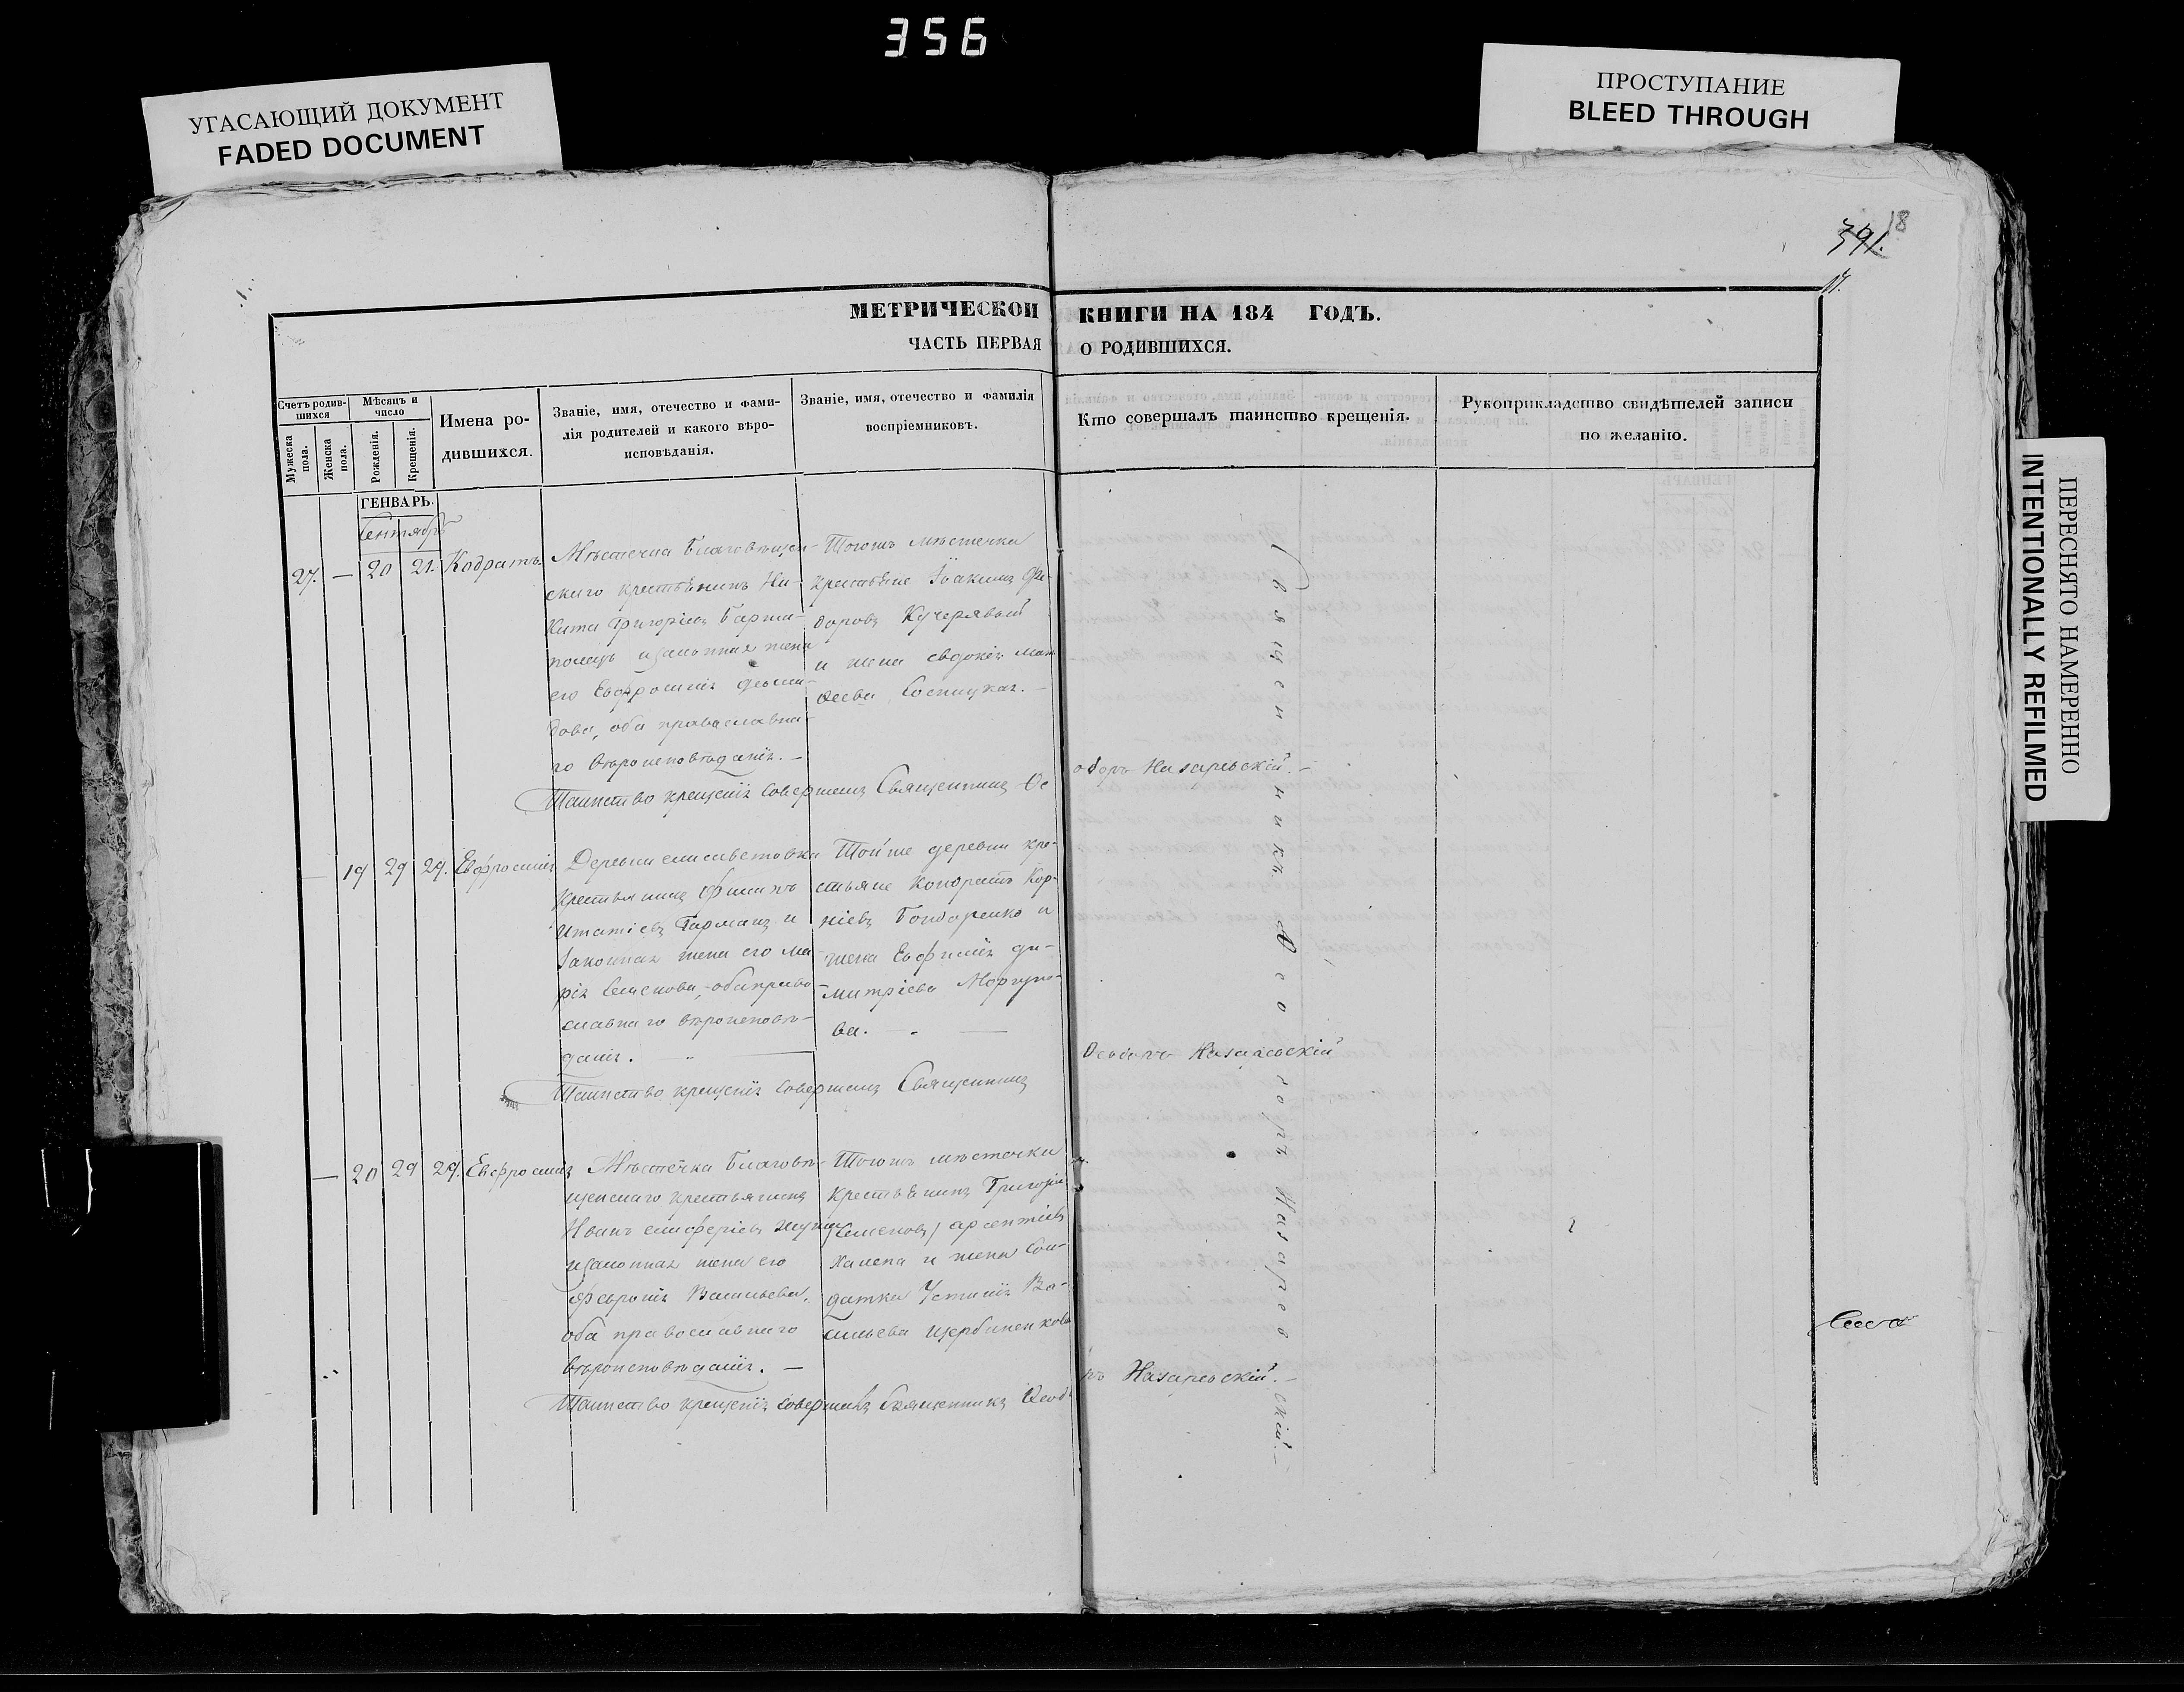 356
УГАСАЮЩИЙ ДОКУМЕНТ
FADED DOCUMENT
ПРОСТУПАНИЕ
BLEED THROUGH
ПЕРЕСНЯТО НАМЕРЕННО
INTENTIONALLY REFILMED
391.
18
МЕТРИЧЕСКОИ КНИГИ НА 184 ГОДЪ.
ЧАСТЬ ПЕРВАЯ О РОДИВШИХСЯ.
Счетъ родив-
шихся
Мужеска
пола.
Женска
пола.
Мѣсяцъ и
число
Рожденія.
Крещенія.
Имена ро-
дившихся.
Званіе, имя, отечество и фами-
лія родителей и какого вѣро-
исповѣданія.
Званіе, имя, отечество и фамилія
воспріемниковъ.
Кто совершалъ таинство крещенія.
Рукоприкладство свидѣтелей записи
по желанію.
ГЕНВАРЬ.
Сентябрь
27. — 20 21. Кодратъ.
Мѣстечка Благовѣщен-
скаго крестьянинъ Ни-
кита Григоріевъ
изаконная жена
его Евфросинія
дова, оба православна-
го вѣроисповѣданія. —
Тогожъ мѣстечка
крестьяне Іоакимъ Фе-
доровъ Кучерявый
и жена евдокія Мат-
ѳеева
Таинство крещенія совершилъ Священникъ Ѳе
одоръ Назаревскій. —
— 19 29 29. Евфросинія
Деревни елисаветовки
крестьянинъ Филипъ
Игнатіевъ и
законная жена его Ма-
рія Семенова, оба право-
славнаго вѣроисповѣ-
данія. —
Той же деревни кре-
стьяне Кондратъ Кор-
ніевъ Бондаренко и
жена Евфимія ди-
митріева Моргуно-
ва. —
Таинство крещенія совершилъ Священникъ
Ѳеодоръ Назаревскій
— 20 29 29. Евфросинія
Мѣстечка Благовѣ-
щенскаго крестьянинъ
Иванъ елиферіевъ
изаконная жена его
Февронія Васильева,
оба православнаго
вѣроисповѣданія. —
Тогожъ мѣстечка
крестьянинъ Григорій
(Семеновъ) арсентіевъ
и жена Сол-
датка Устинія Ва-
сильева щербиненкова
Таинство крещенія совершилъ Священникъ Ѳеодо
ръ Назаревскій. —
Священникъ Ѳеодоръ Назаревскій. —